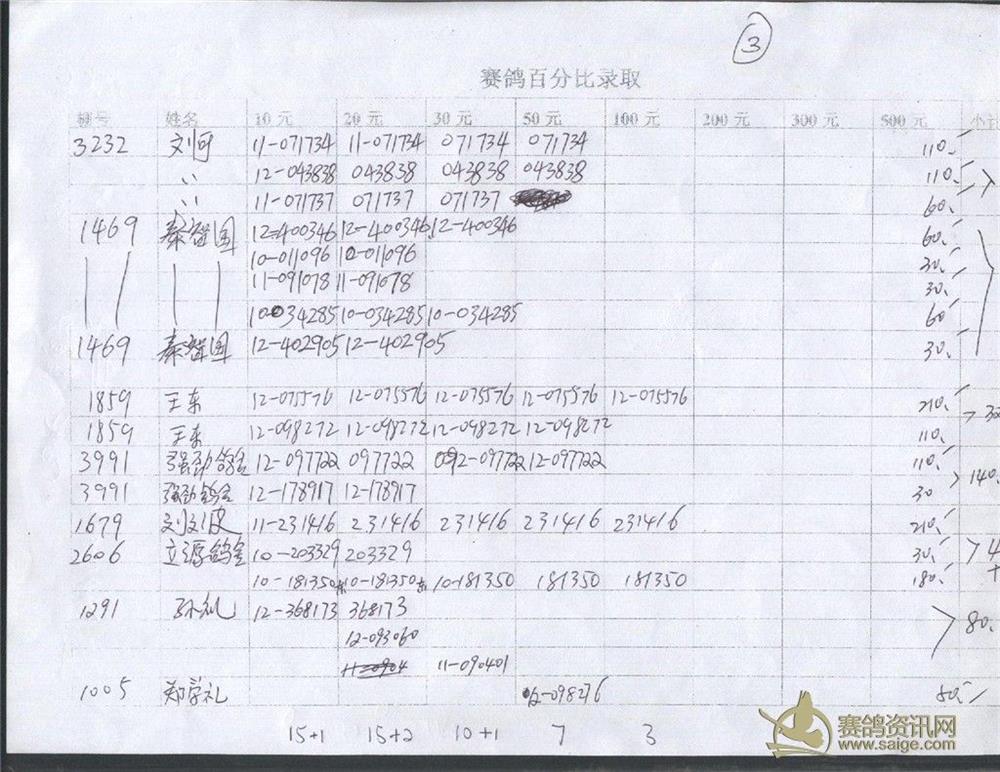 3
赛鸽百分比录取
棚号 姓名 10元 20元 30元 50元 100元 200元 300元 500元 小计
3232 刘何 11-071734 11-071734 071734 071734 110.
〃 12-043838 043838 043838 043838 110.
〃 11-071737 071737 071737 60.
1469 秦智国 12-400346 12-400346 12-400346 60.
10-011096 10-011096 30.
11-091078 11-091078 30.
10-034285 10-034285 10-034285 60
1469 秦智国 12-402905 12-402905 30.
1859 王东 12-075576 12-075576 12-075576 12-075576 12-075576 210.
1859 王东 12-098272 12-098272 12-098272 12-098272 110.
3991 强劲鸽舍 12-097722 097722 12-097722 12-097722 110.
3991 强劲鸽舍 12-178917 12-178917 30 140.
1679 刘波 11-231416 231416 231416 231416 231416 210.
2606 立源鸽舍 10-203329 203329 30.
10-181350 10-181350 10-181350 181350 181350 180.
1291 孙礼 12-368173 368173 80.
12-093060
11-0904 11-090401
1005 郑学礼 12-098276 50.
15+1 15+2 10+1 7 3
赛鸽资讯网
www.saige.com